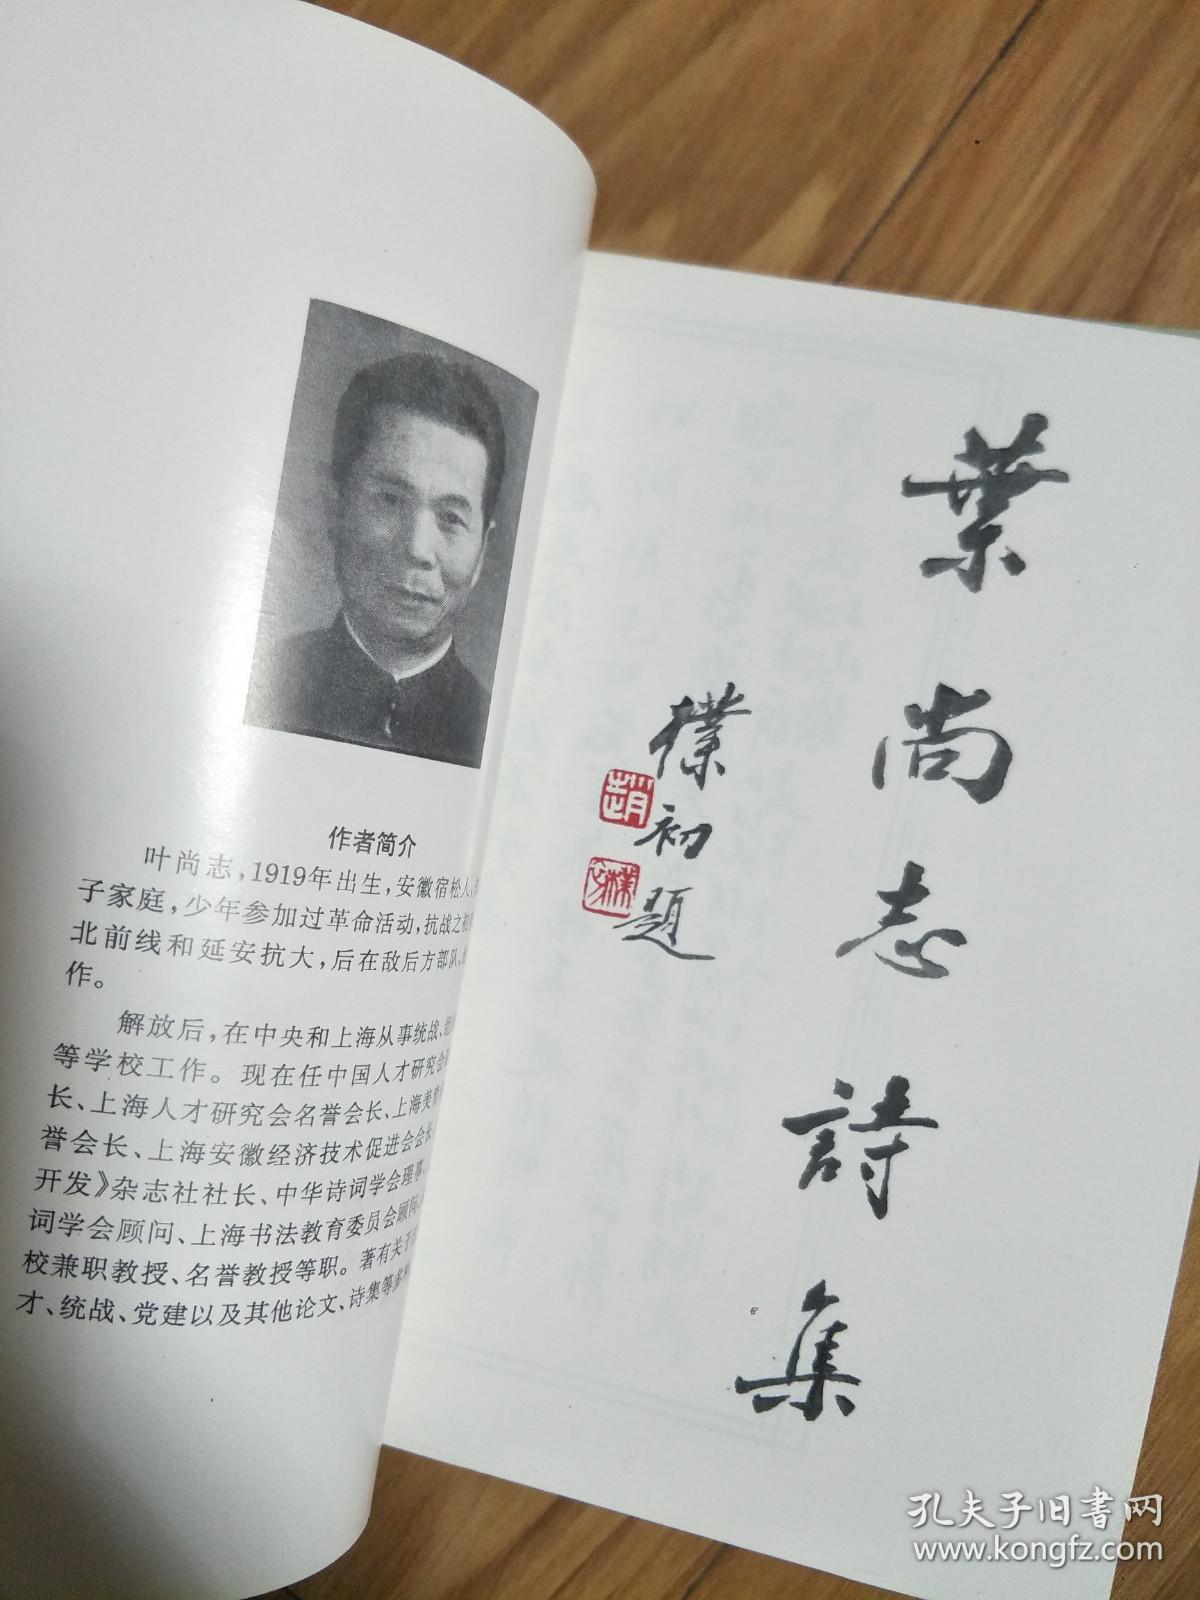 作者简介
叶尚志，1919年出生，安徽宿松人，
子家庭，少年参加过革命活动，抗战之初
北前线和延安抗大，后在敌后方部队、
作。
解放后，在中央和上海从事统战、
等学校工作。现在任中国人才研究会
长、上海人才研究会名誉会长、上海美育
誉会长、上海安徽经济技术促进会会长、
开发》杂志社社长、中华诗词学会理事、
词学会顾问、上海书法教育委员会顾问、
校兼职教授、名誉教授等职。著有关于
才、统战、党建以及其他论文、诗集等多
葉尚志詩集
樸初題
趙
樸初
孔夫子旧书网
www.kongfz.com